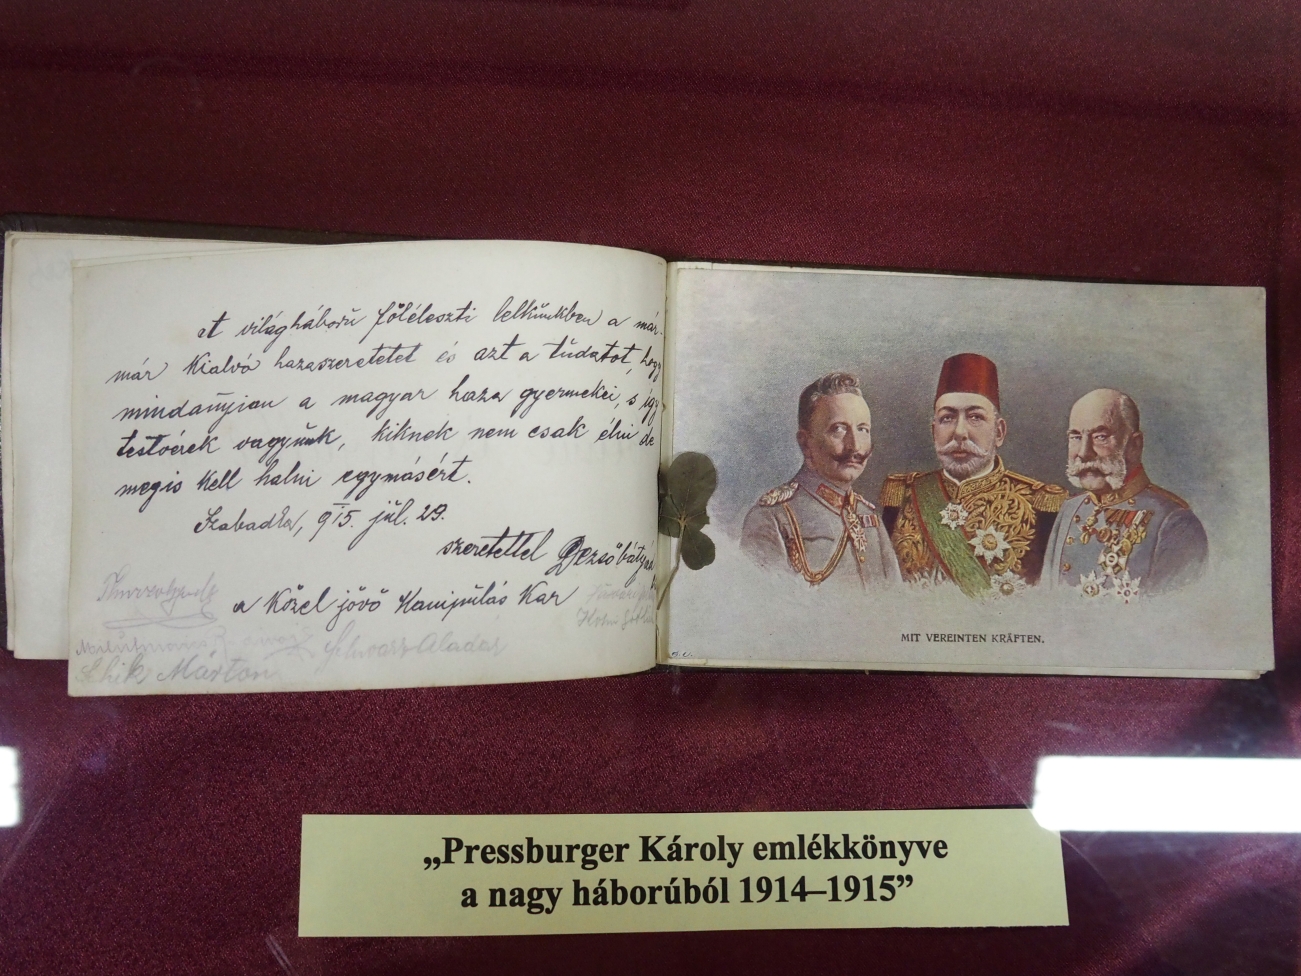 A világháború föléleszti lelkünkben a már-
már kialvó hazaszeretetet és azt a tudatot, hogy
mindannyian a magyar haza gyermekei, s így
testvérek vagyunk, kiknek nem csak élni de
megis kell halni egymásért.
Szabadka, 915. júl. 29.
szeretettel Dezső
a közel jövő
Kar
Schwarz Aladár
Schik Márton
MIT VEREINTEN KRÄFTEN.
„Pressburger Károly emlékkönyve
a nagy háborúból 1914–1915”